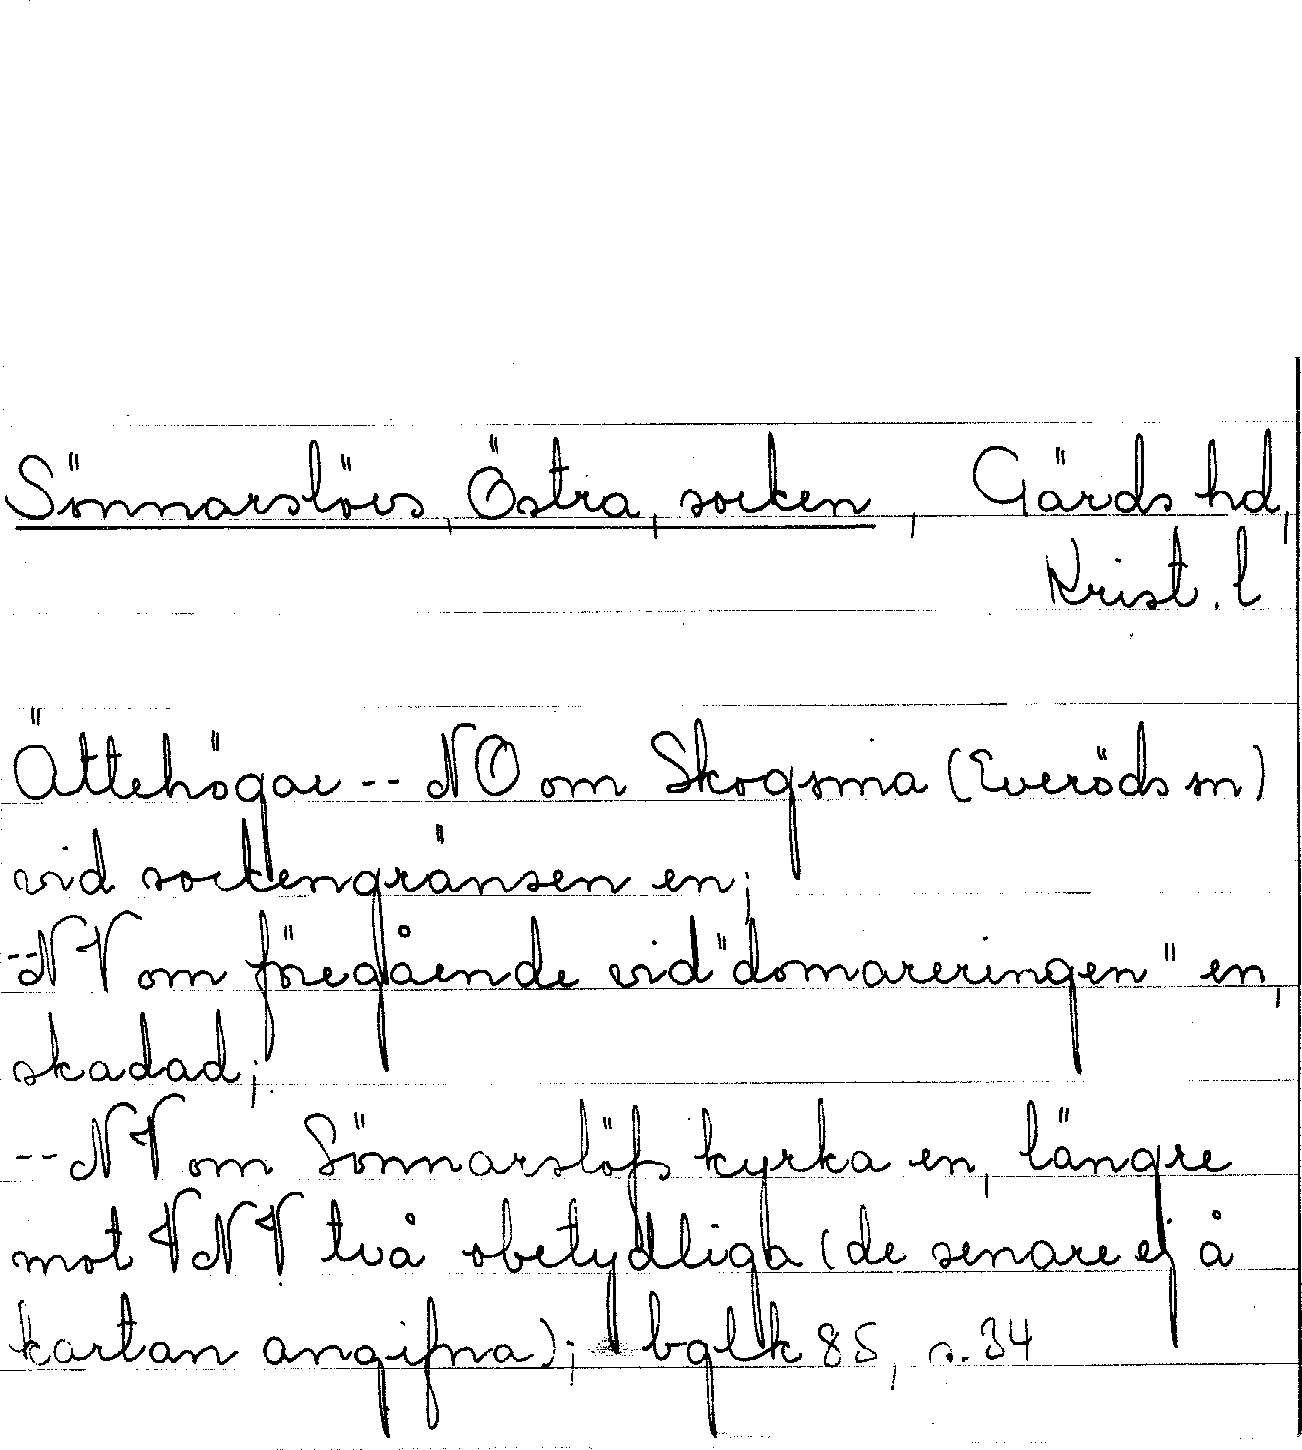 Sönnarslövs, Östra, socken, Gärds hd,
Krist. l
Ättehögar -- NO om Skogsma (Everöds sn)
vid sockengränsen en;
--NV om föregående vid "domareringen" en,
skadad;
--NV om Sönnarslöfs kyrka en, längre
mot VNV två obetydliga (de senare ej å
kartan angifna); bglk 85, s. 34